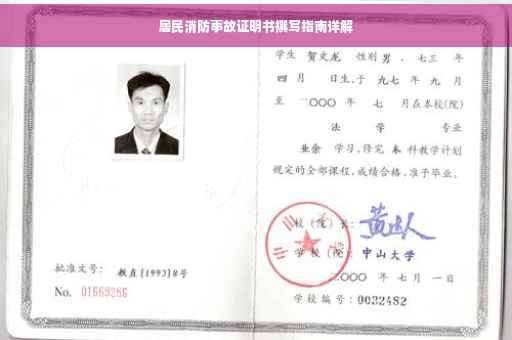 居民消防事故证明书撰写指南详解
学生 贺文龙 性别 男 、七三 年
四 月 日生,于 九七 年 九 月
至 二〇〇〇 年 七 月在本校(院)
法 学 专业
业余 学习,修完 本 科教学计划
规定的全部课程,成绩合格,准予毕业。
校 (院) 长:
学 校 (院): 中山大学
二〇〇〇 年 七 月 一 日
批准文号: 教直(1993)8号
No. 01669286
学校编号: 0032482